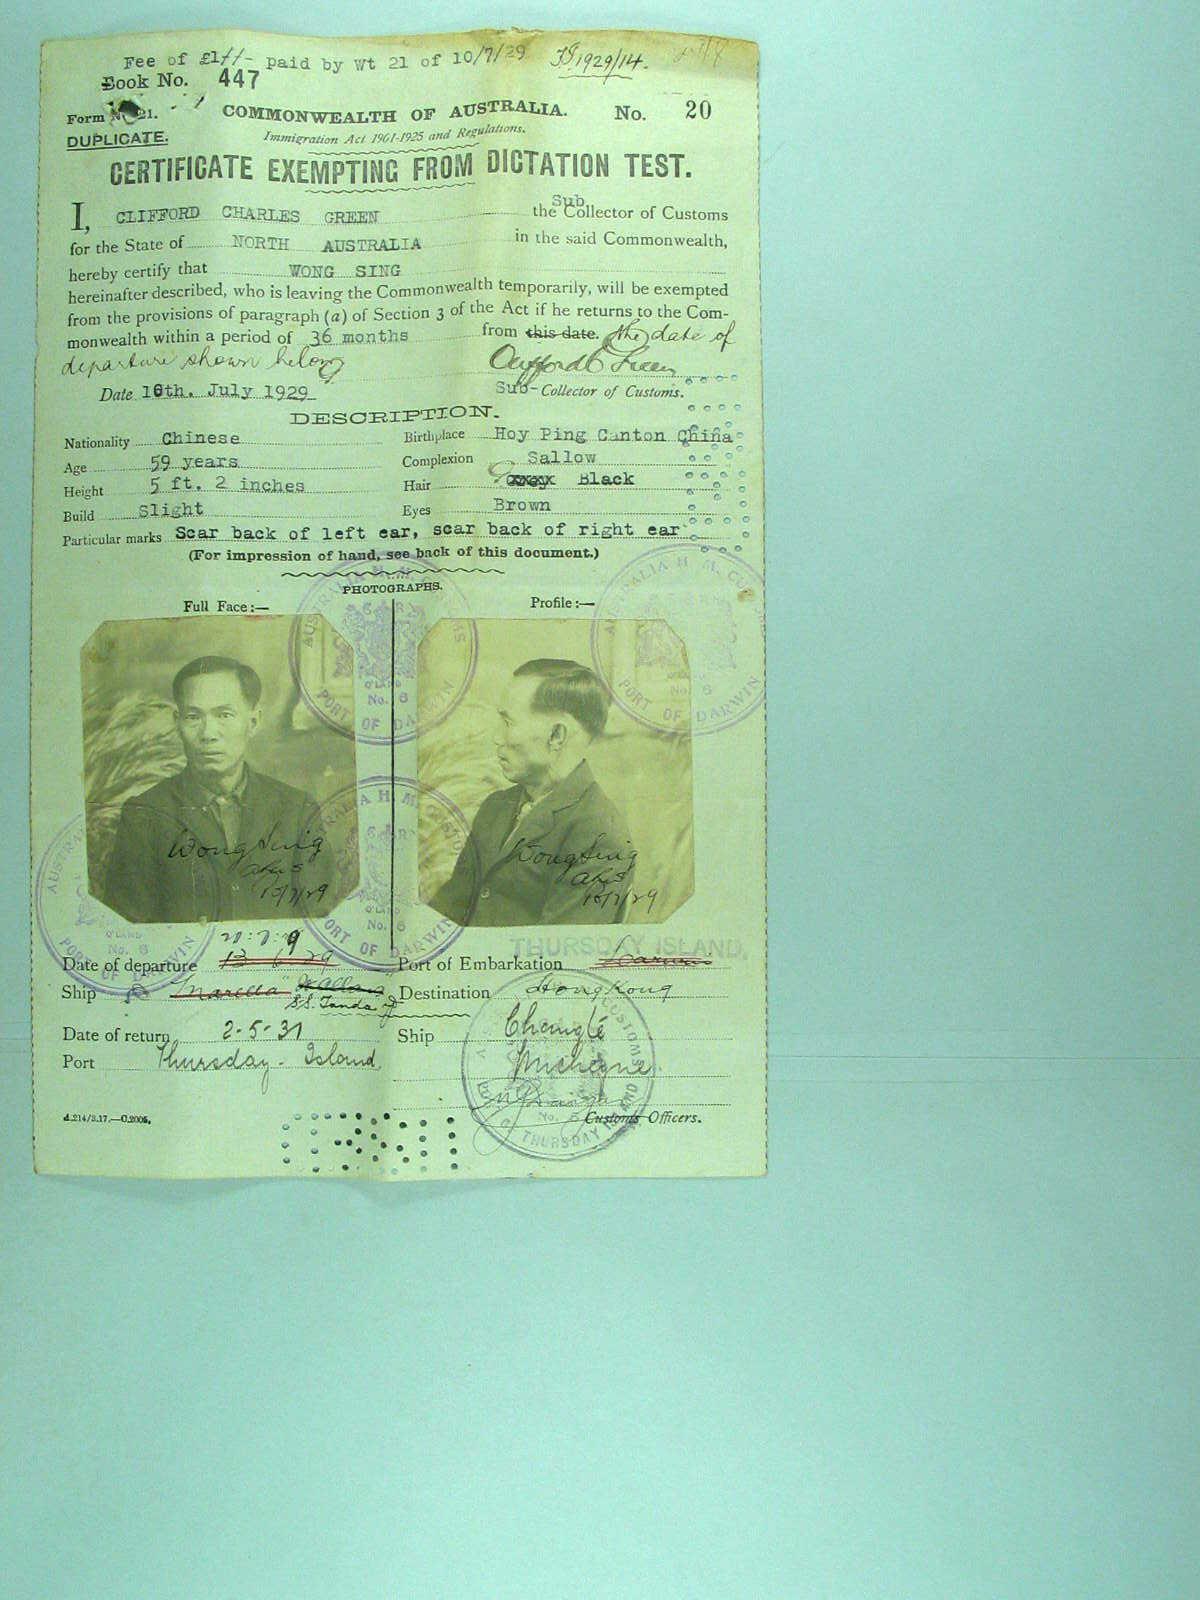 Fee of £1-/- paid by Wt 21 of 10/7/29 1929/14.
Book No. 447
Form No. 21. COMMONWEALTH OF AUSTRALIA. No. 20
DUPLICATE. Immigration Act 1901-1925 and Regulations.
CERTIFICATE EXEMPTING FROM DICTATION TEST.
I, CLIFFORD CHARLES GREEN the Sub Collector of Customs
for the State of NORTH AUSTRALIA in the said Commonwealth,
hereby certify that WONG SING
hereinafter described, who is leaving the Commonwealth temporarily, will be exempted
from the provisions of paragraph (a) of Section 3 of the Act if he returns to the Com-
monwealth within a period of 36 months from this date. the date of
departure shown below Clifford C Green
Date 16th. July 1929 Sub- Collector of Customs.
DESCRIPTION.
Nationality Chinese Birthplace Hoy Ping Canton China
Age 59 years Complexion Sallow
Height 5 ft. 2 inches Hair Black
Build Slight Eyes Brown
Particular marks Scar back of left ear, scar back of right ear
(For impression of hand, see back of this document.)
PHOTOGRAPHS.
Full Face:— Profile:—
AUSTRALIA H. M. CUSTOMS
Q'LAND
No. 6
PORT OF DARWIN
AUSTRALIA H. M. CUSTOMS
No. 6
PORT OF DARWIN
Wong Sing
10/7/29
Wong Sing
10/7/29
AUSTRALIA H. M. CUSTOMS
Q'LAND
No. 6
PORT OF DARWIN
AUSTRALIA
Q'LAND
No. 6
PORT OF DARWIN
20.7.29 THURSDAY ISLAND.
Date of departure 13 6 29 Port of Embarkation Darwin
Ship Marella Destination Hong Kong
S.S. Tanda
Date of return 2-5-31 Ship Changte
Port Thursday Island
CUSTOMS
No. 5
THURSDAY ISLAND
d.214/3.17.—C.2005. Customs Officers.